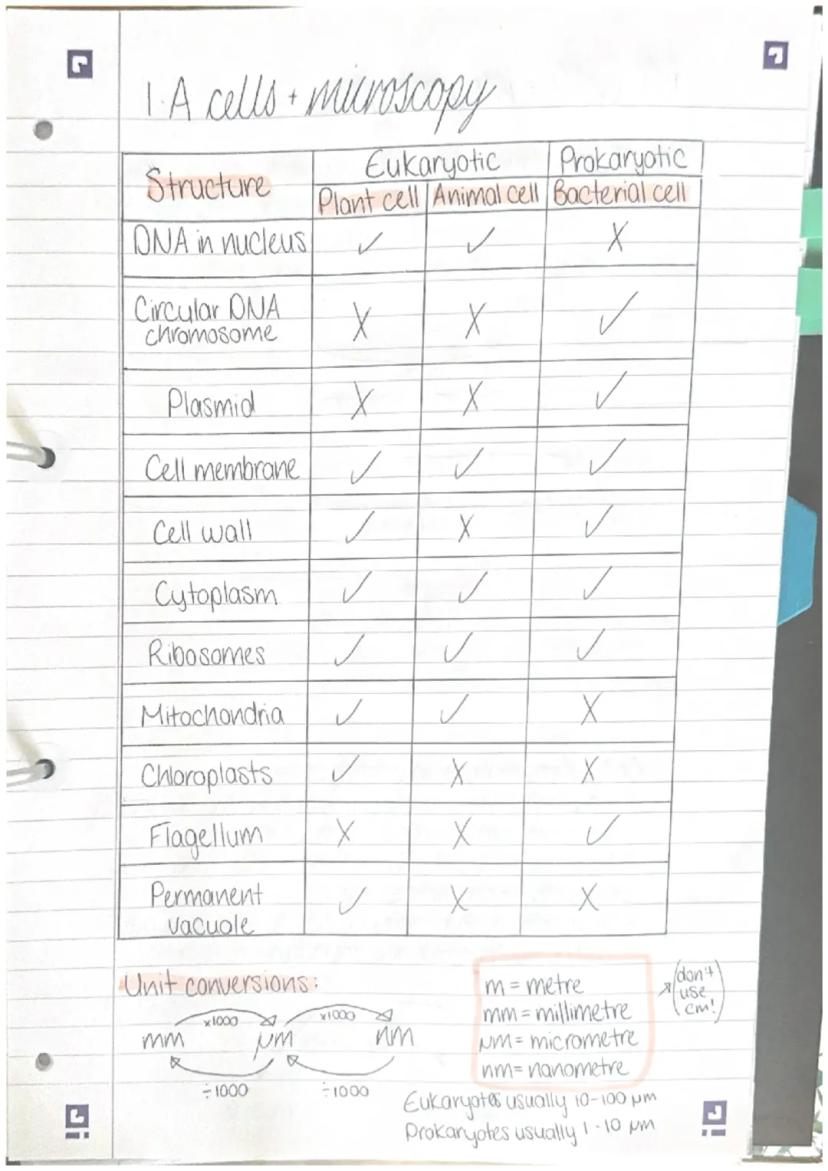 1.A cells + microscopy
Structure Eukaryotic Prokaryotic
Plant cell Animal cell Bacterial cell
DNA in nucleus ✓ ✓ X
Circular DNA
chromosome X X ✓
Plasmid X X ✓
Cell membrane ✓ ✓ ✓
Cell wall ✓ X ✓
Cytoplasm ✓ ✓ ✓
Ribosomes ✓ ✓ ✓
Mitochondria ✓ ✓ X
Chloroplasts ✓ X X
Flagellum X X ✓
Permanent
vacuole ✓ X X
Unit conversions:
x1000 x1000
mm μm nm
÷1000 ÷1000
m = metre
mm = millimetre
μm = micrometre
nm = nanometre
(don't
use
cm!)
Eukaryotes usually 10-100 μm
Prokaryotes usually 1-10 μm